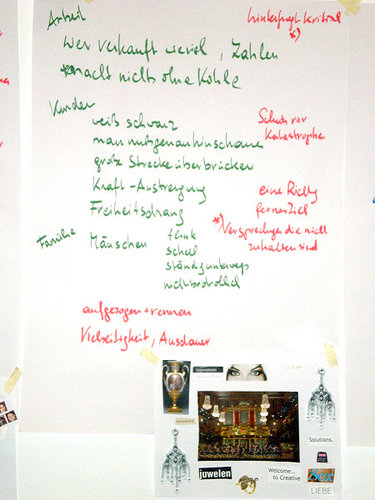 Arbeit
hinterfragt kritisch
*)
Wer verkauft wieviel, Zahlen
macht nichts ohne Kohle
Kunden
weiß schwarz
man muß genau hinschauen
Schutz vor
Katastrophe
große Strecke überbrücken
Kraft-Anstrengung
eine Richtg
fernes Ziel
Freiheitsdrang
*) Versprechungen die nicht
zuhalten sind
Familie
Mäuschen
flink
schell
ständig unterwegs
nicht bedrohlich
aufgezogen + rennen
Vielseitigkeit, Ausdauer
Solutions.
juwelen
Welcome...
to Creative
LIEBE